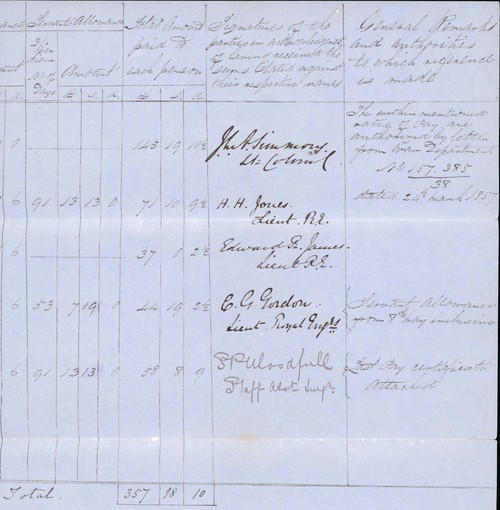 Servants Allowance
Total Amount
paid to
each person
Signatures of the
parties in acknowledgment
of having received the
Sums stated against
their respective names
General Remarks
and authorities
to which reference
is made
Days
Amount
£ s. d
£ s. d
The within mentioned
rates of Pay are
authorised by letter
from War Department
No 157.385
38
dated 24th March 1857
0 145 19 10½ Jn A. Simmons
Lt Colonel
6 91 13 13 0 71 10 9½ H. H. Jones
Lieut R.E.
6 37 0 2½ Edward R. James
Lieut R.E.
6 53 7 19 0 44 19 2½ C. G. Gordon
Lieut Royal Engrs
Servant Allowance
from 8th May inclusive
6 91 13 13 0 58 8 9 Woodfull
Staff Asst Surgn
Last Pay certificate
Attached
Total. 357 18 10